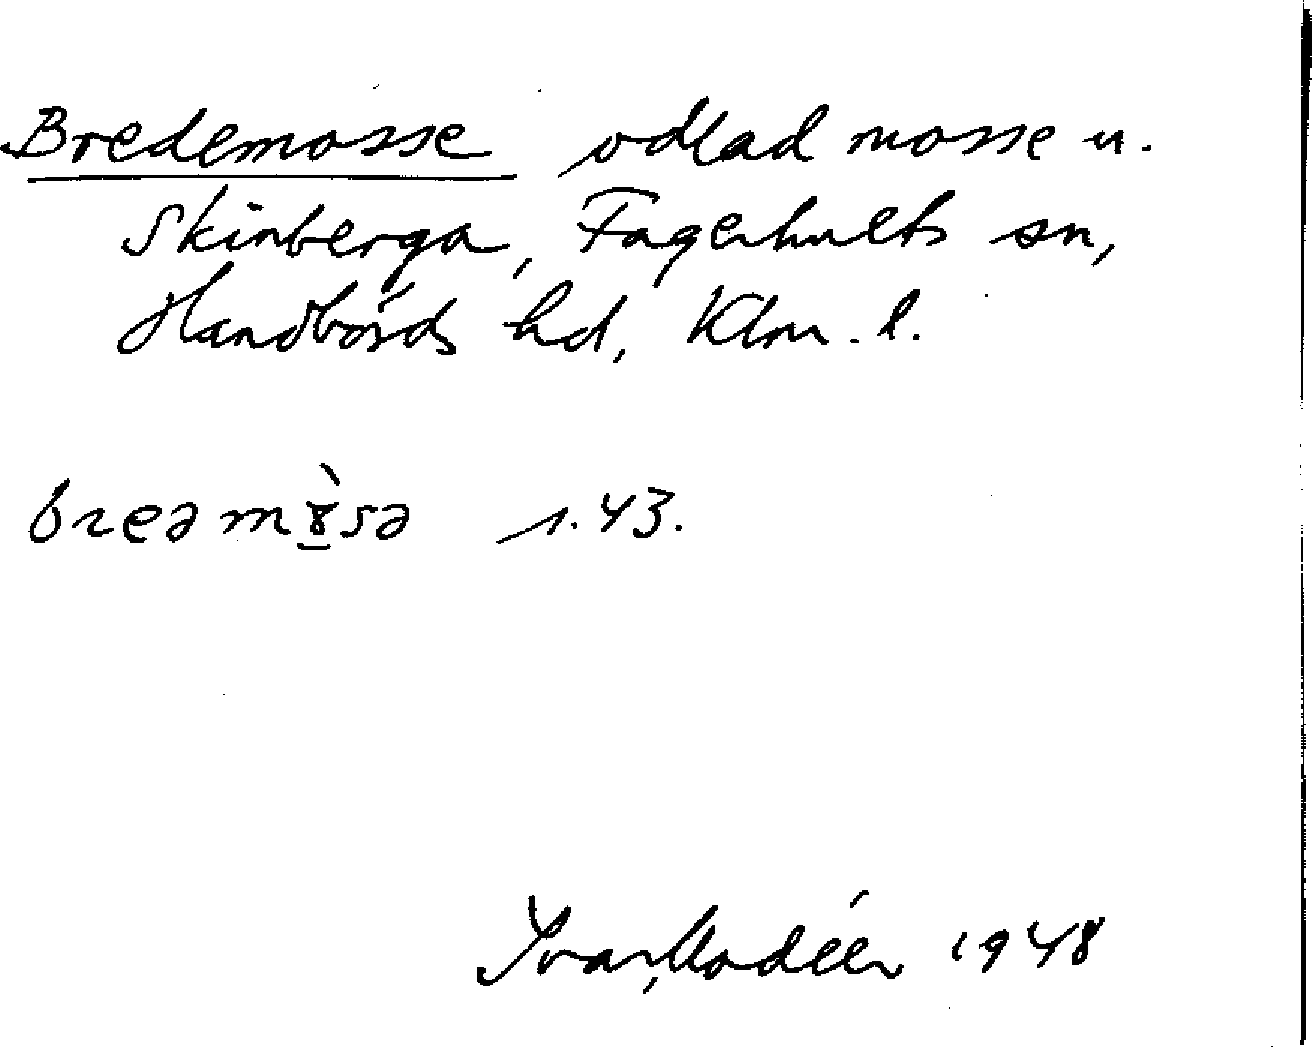 Bredemosse odlad mosse u.
Skinberga, Fagerhults sn,
Handbörds hd, Klm. l.
breəm8̱̀sə s. 43.
Ivar Modéer 1948